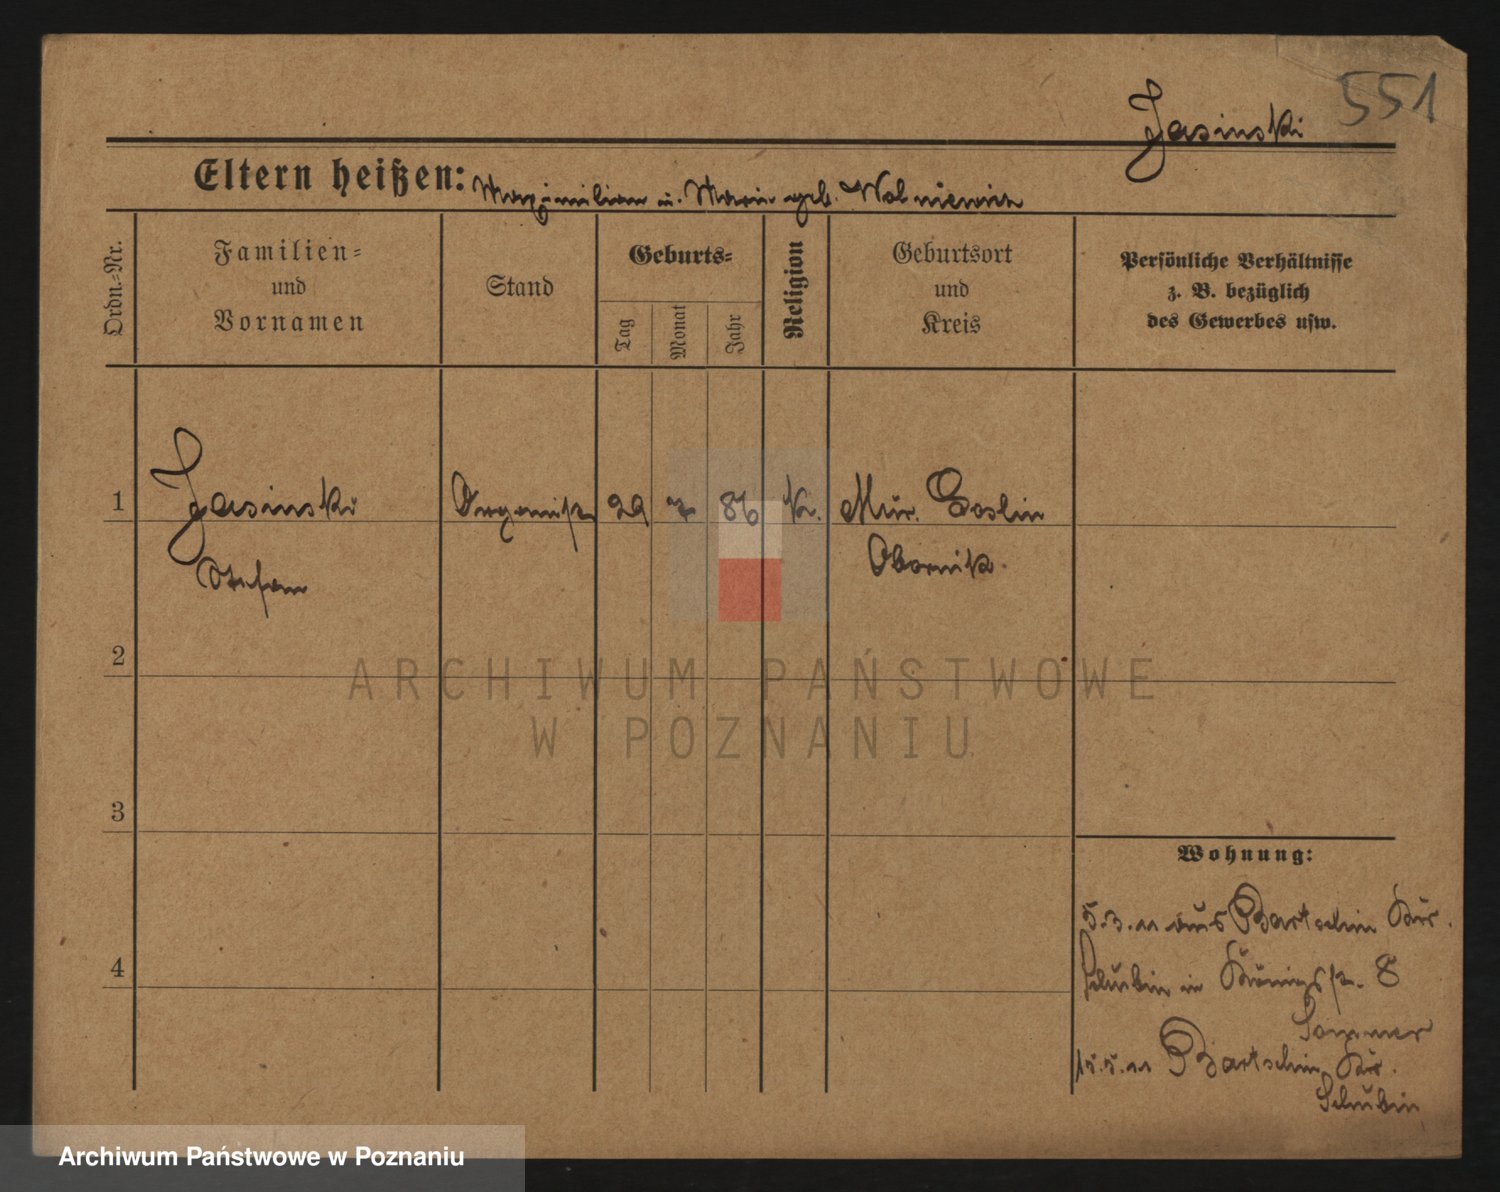 551
Jasinski
Eltern heißen: Maximilian u. Maria geb. Wolniewicz
Ordn.-Nr.
Familien-
und
Vornamen
Stand
Geburts-
Tag
Monat
Jahr
Religion
Geburtsort
und
Kreis
Persönliche Verhältnisse
z. B. bezüglich
des Gewerbes usw.
1
Jasinski
Stefan
Organist
29
7
86
K.
Mur. Goslin
Obornik.
2
3
4
Wohnung:
5.3.11 aus Bartschin Kr.
Schubin in Königstr. 8
Sommer
15.5.11 Bartschin Kr.
Schubin
ARCHIWUM PAŃSTWOWE
W POZNANIU
Archiwum Państwowe w Poznaniu